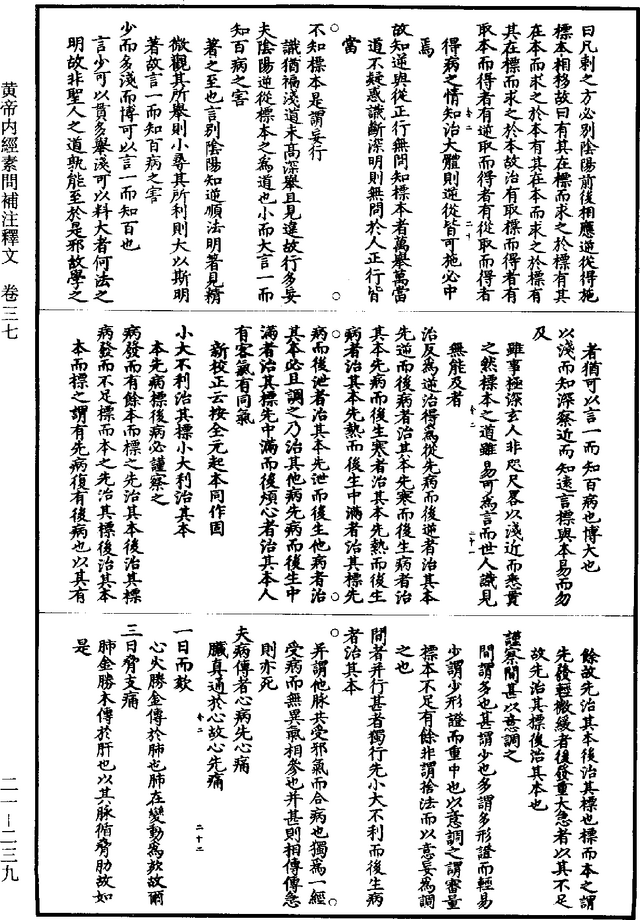 黄帝内經素問補注釋文　卷三七
二一—二三九
曰凡刺之方必別陰陽前後相應逆從得施
標本相移故曰有其在標而求之於標有其
在本而求之於本有其在本而求之於標有
其在標而求之於本故治有取標而得者有
取本而得者有逆取而得者有從取而得者
得病之情知治大體則逆從皆可施必中
焉
故知逆與從正行無問知標本者萬舉萬當
道不疑惑識斷深明則無問於人正行皆
當
不知標本是謂妄行
識猶褊淺道未高深舉且見違故行多妄
夫陰陽逆從標本之爲道也小而大言一而
知百病之害
著之至也言別陰陽知逆順法明著見精
微觀其所舉則小尋其所利則大以斯明
著故言一而知百病之害
少而多淺而博可以言一而知百也
言少可以貫多舉淺可以料大者何法之
明故非聖人之道孰能至於是邪故學之
者猶可以言一而知百病也博大也
以淺而知深察近而知遠言標與本易而勿
及
雖事極深玄人非咫尺畧以淺近而悉貫
之然標本之道雖易可爲言而世人識見
無能及者
治反爲逆治得爲從先病而後逆者治其本
先逆而後病者治其本先寒而後生病者治
其本先病而後生寒者治其本先熱而後生
病者治其本先熱而後生中滿者治其標先
病而後泄者治其本先泄而後生他病者治
其本必且調之乃治其他病先病而後生中
滿者治其標先中滿而後煩心者治其本人
有客氣有同氣
新校正云按全元起本同作固
小大不利治其標小大利治其本
本先病標後病必謹察之
病發而有餘本而標之先治其本後治其標
病發而不足標而本之先治其標後治其本
本而標之謂有先病復有後病也以其有
餘故先治其本後治其標也標而本之謂
先發輕微緩者後發重大急者以其不足
故先治其標後治其本也
謹察間甚以意調之
間謂多也甚謂少也多謂多形證而輕易
少謂少形證而重中也以意調之謂審量
標本不足有餘非謂捨法而以意妄爲調
之也
間者并行甚者獨行先小大不利而後生病
者治其本
并謂他脉共受邪氣而合病也獨爲一經
受病而無異氣相參也并甚則相傳傳急
則亦死
夫病傳者心病先心痛
臟真通於心故心先痛
一日而欬
心火勝金傳於肺也肺在變動爲欬故爾
三日脅支痛
肺金勝木傳於肝也以其脉循脅肋故如
是